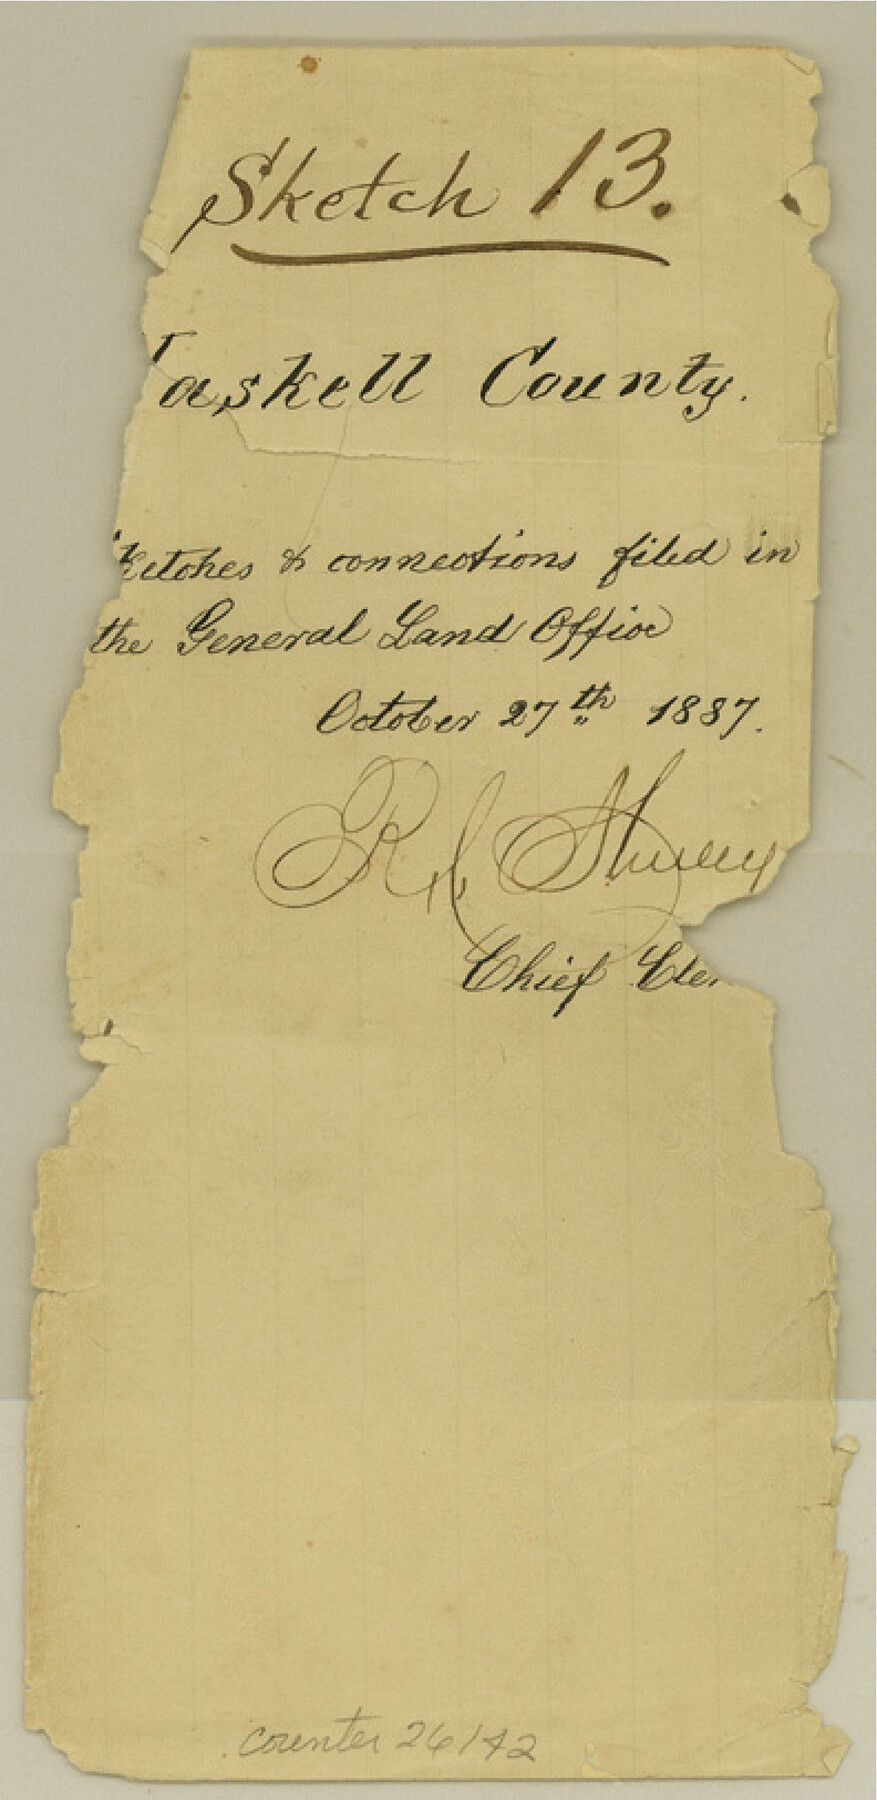 Sketch 13.
askell County.
ketches & connections filed in
the General Land Office
October 27th 1887.
Chief Cle
counter 26142